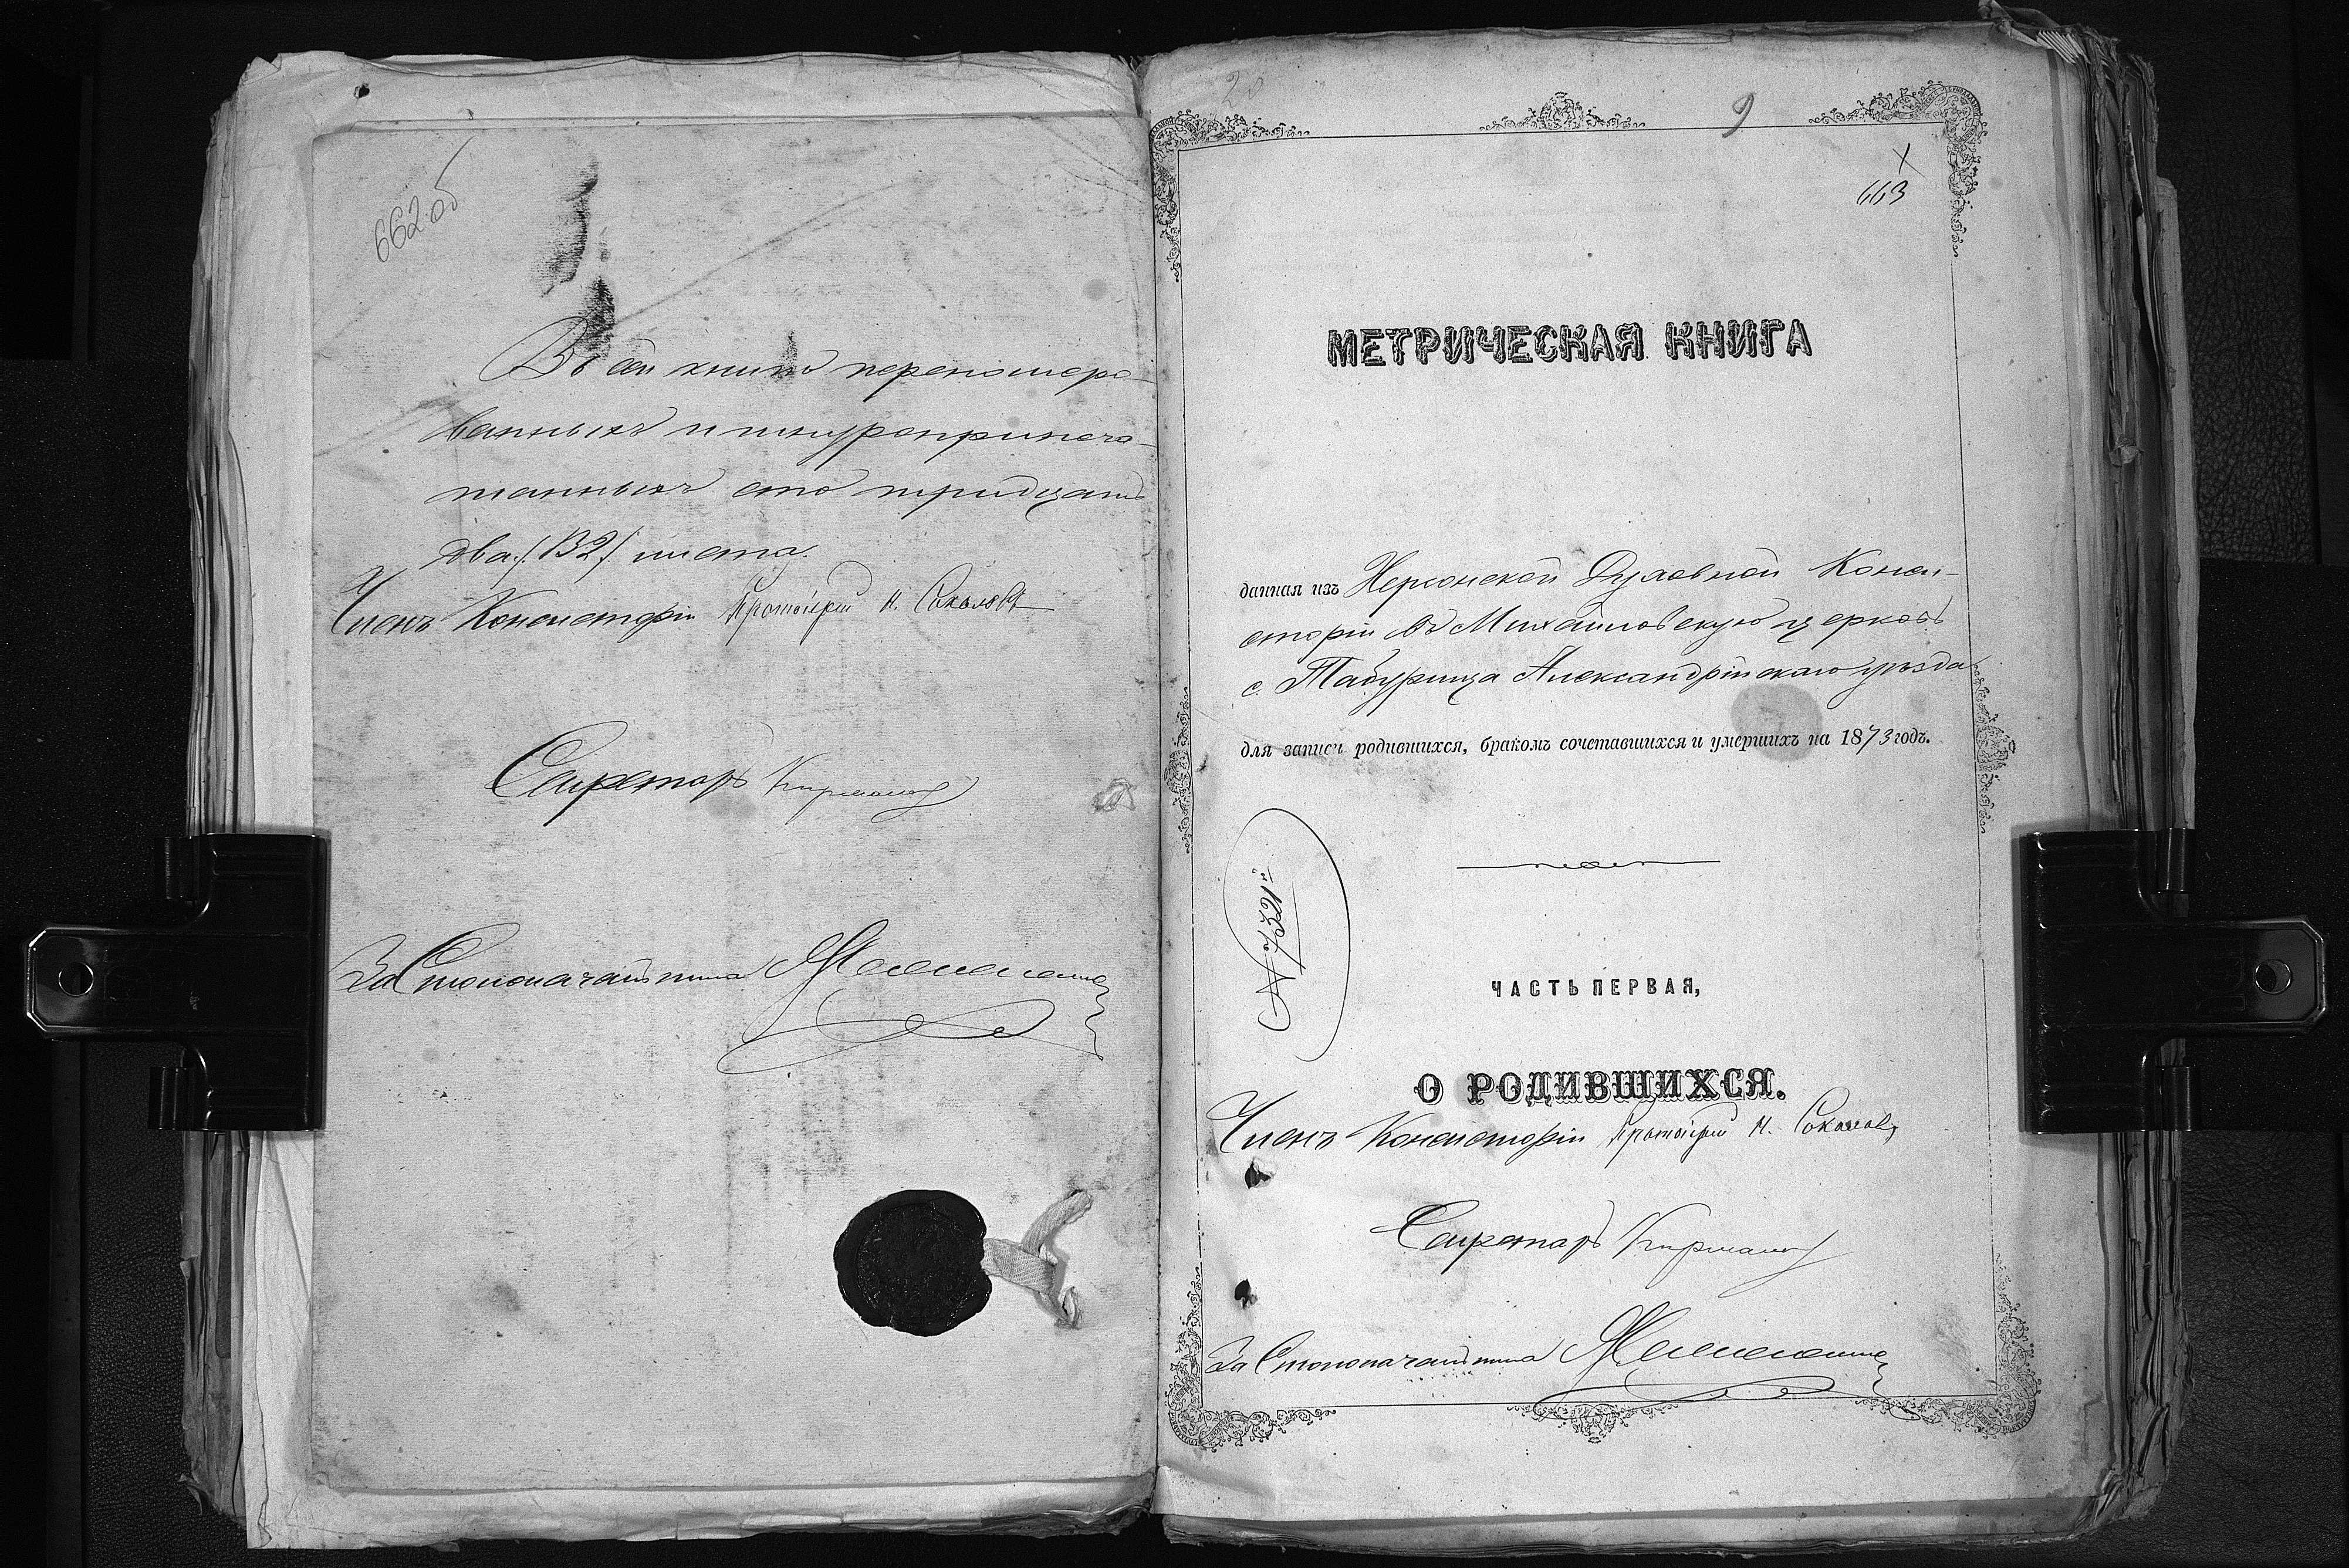 662 об
Въ сей книгѣ перенумеро-
ванныхъ и шнуроприпеча-
танныхъ сто тридцать
два /132/ листа.
Членъ Консисторіи Протоіерей Н. Соколовъ
Секретарь
За Столоначальника
20
9
663
МЕТРИЧЕСКАЯ КНИГА
данная изъ Херсонской Духовной Конси-
сторіи въ Михайловскую церковь
с. Табурища Александрійскаго уѣзда
для записи родившихся, бракомъ сочетавшихся и умершихъ на 1873 годъ.
№ 7321й
ЧАСТЬ ПЕРВАЯ,
О РОДИВШИХСЯ.
Членъ Консисторіи Протоіерей Н. Соколовъ
Секретарь
За Столоначальника